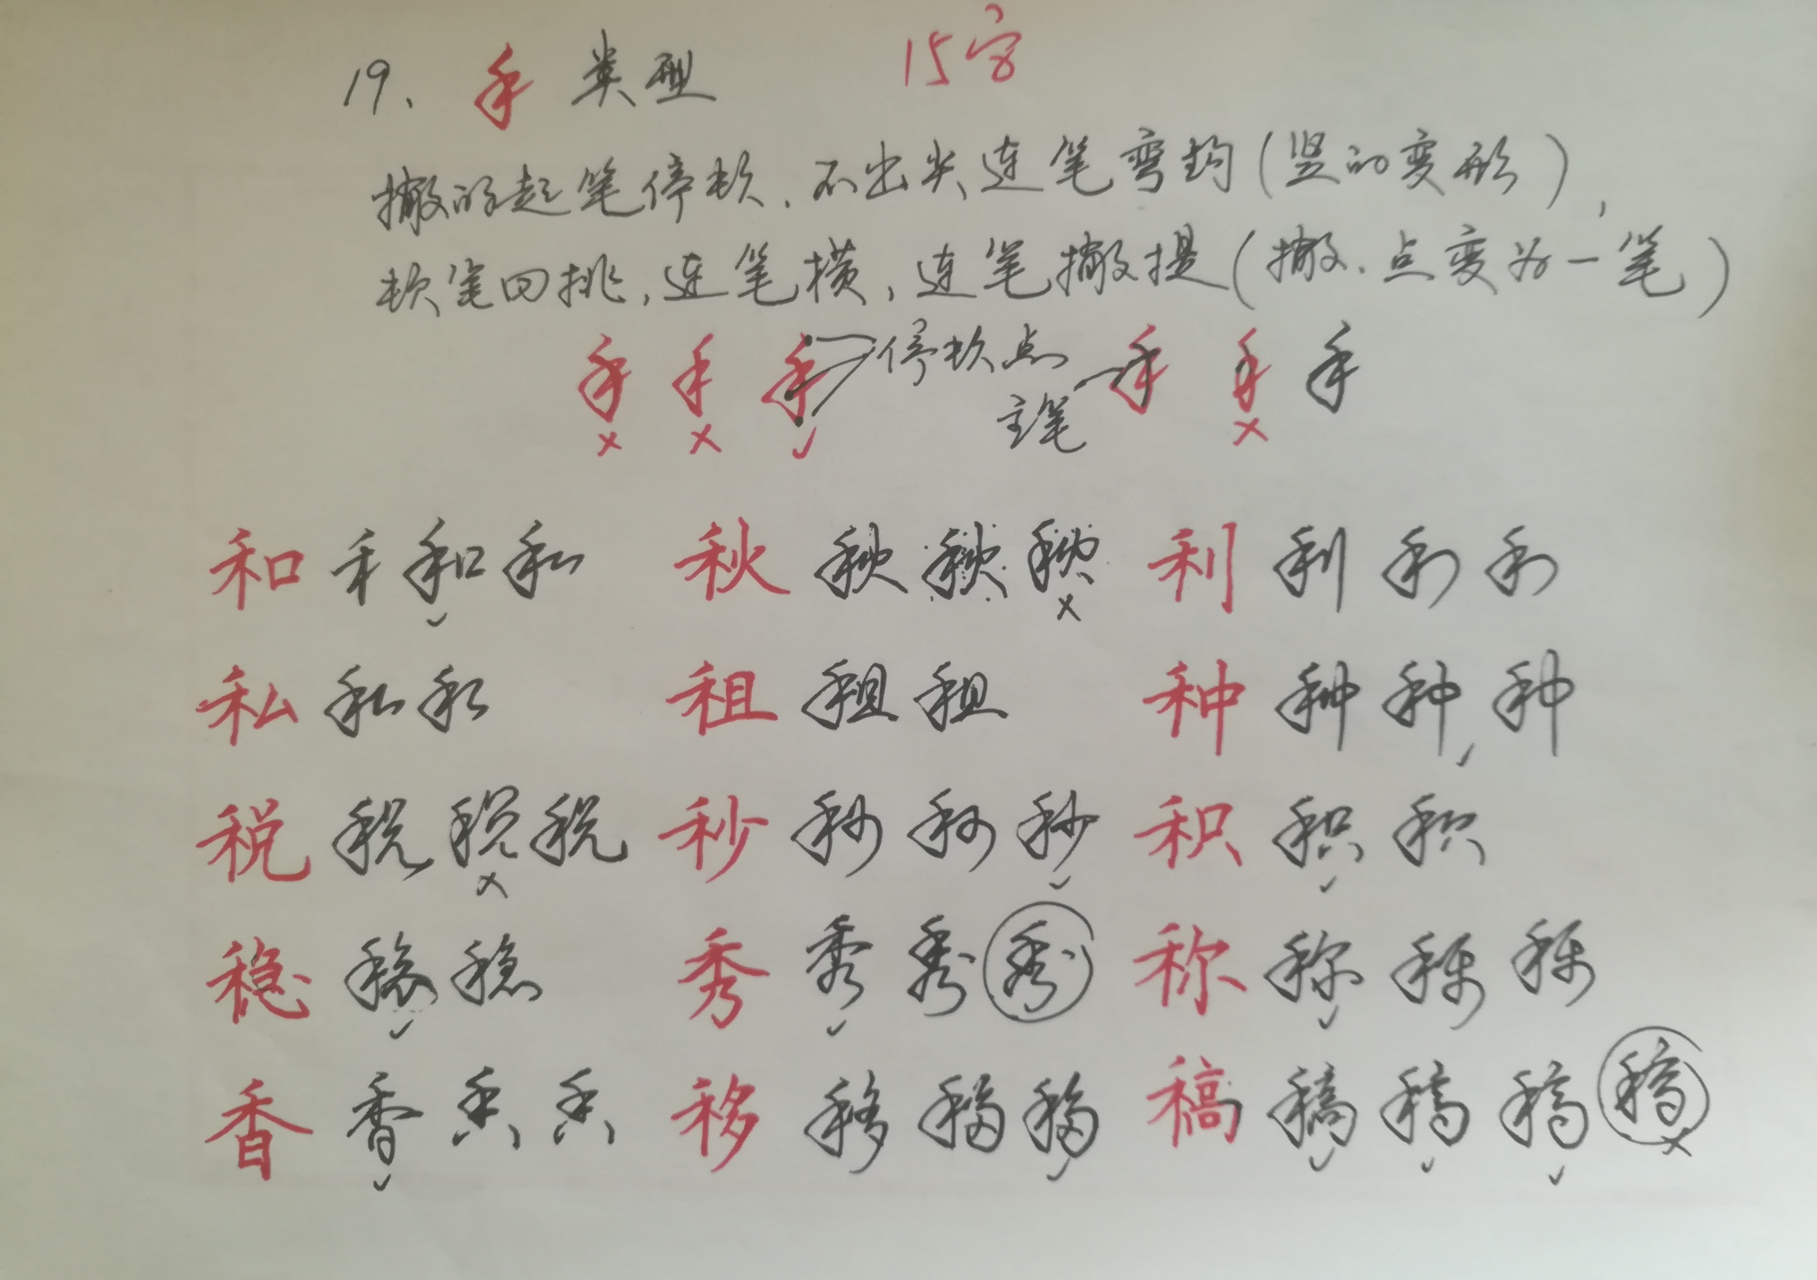 19、禾类型 15字
撇的起笔停顿、不出尖连笔弯钩(竖的变形),
软笔回挑,连笔横,连笔撇提(撇、点变为一笔)
禾 禾 禾 停顿点 主笔 禾 禾 禾
× × ✓ ×
和 禾 和 和 秋 秋 秋 秋 利 利 利 利
✓ ×
私 私 私 租 租 租 种 种 种 种
✓
税 税 税 税 秒 秒 秒 秒 积 积 积
× ✓ ✓
稳 稳 稳 秀 秀 秀 秀 称 称 称 称
✓ ✓ ✓
香 香 香 香 移 移 移 移 稿 稿 稿 稿 稿
✓ ✓ ✓ ✓ ✓ ×